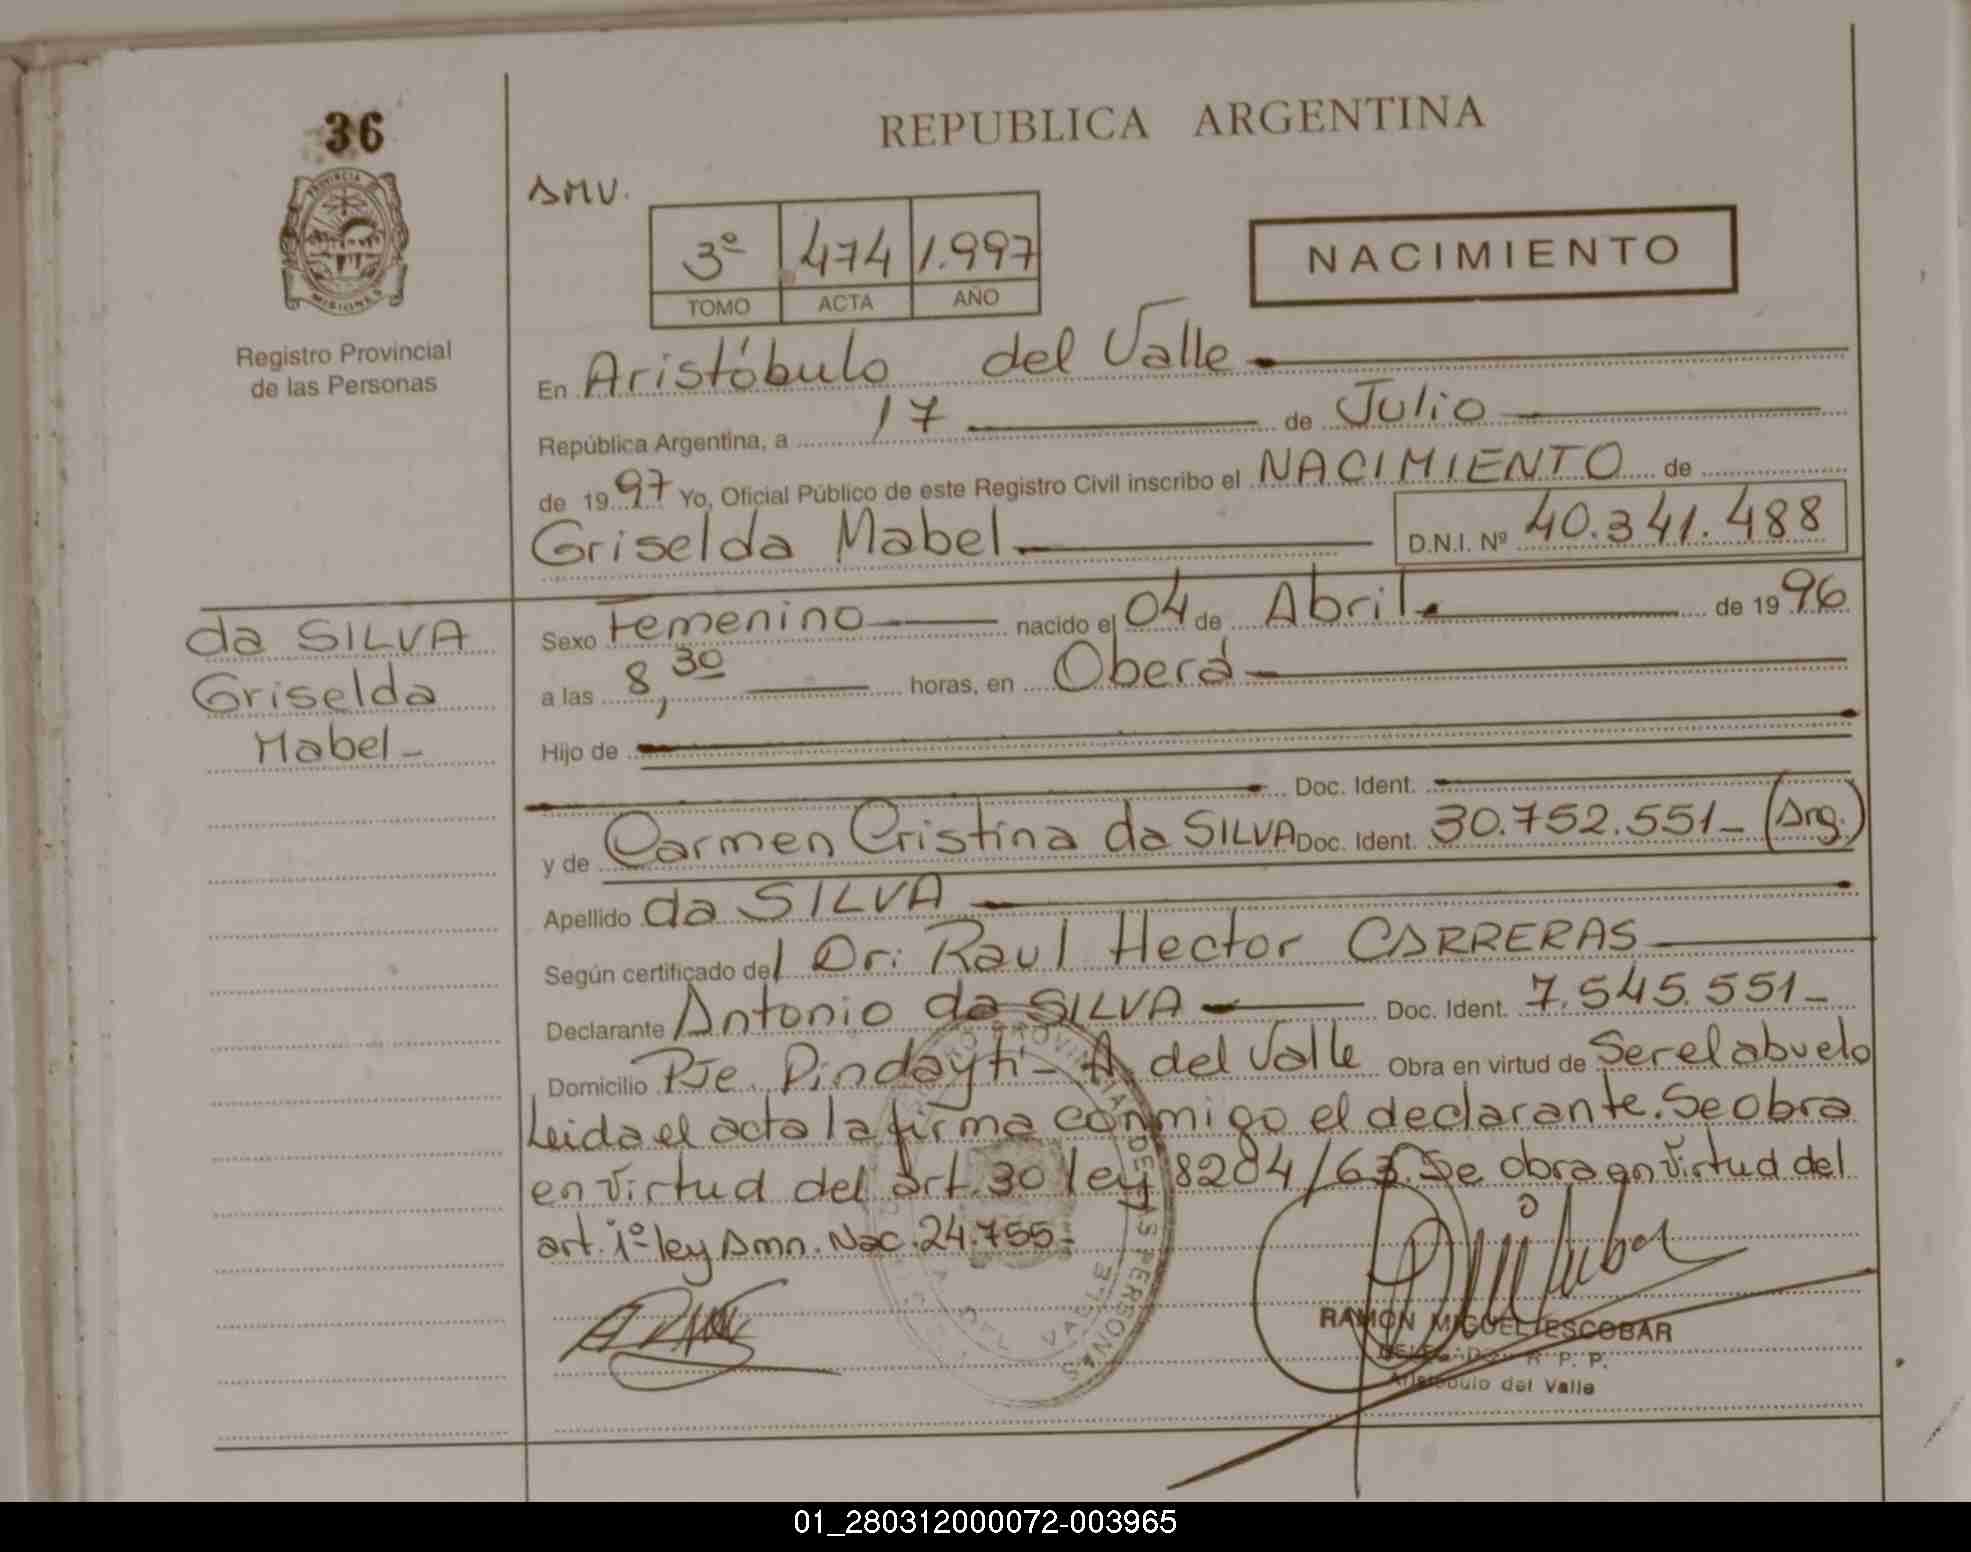 36
PROVINCIA DE
MISIONES
Registro Provincial
de las Personas
REPUBLICA ARGENTINA
AMV.
3º 474 1.997
TOMO ACTA AÑO
NACIMIENTO
En Aristóbulo del Valle
República Argentina, a 17 de Julio
de 1997 Yo, Oficial Público de este Registro Civil inscribo el NACIMIENTO de
Griselda Mabel D.N.I. Nº 40.341.488
da SILVA
Griselda
Mabel-
Sexo Femenino nacido el 04 de Abril de 1996
a las 8,30 horas, en Oberá
Hijo de
Doc. Ident.
y de Carmen Cristina da SILVA Doc. Ident. 30.752.551- (Arg.)
Apellido da SILVA
Según certificado del Dr: Raul Hector CARRERAS
Declarante Antonio da SILVA Doc. Ident. 7.545.551-
Domicilio Pje. Pindaytí - A. del Valle Obra en virtud de Ser el abuelo
Leida el acta la firma conmigo el declarante. Se obra
en virtud del art. 30 ley 8204/63. Se obra en virtud del
art. 1º ley Amn. Nac. 24.755-
RAMON MIGUEL ESCOBAR
DELEGADO R. P. P.
Aristobulo del Valle
01_280312000072-003965